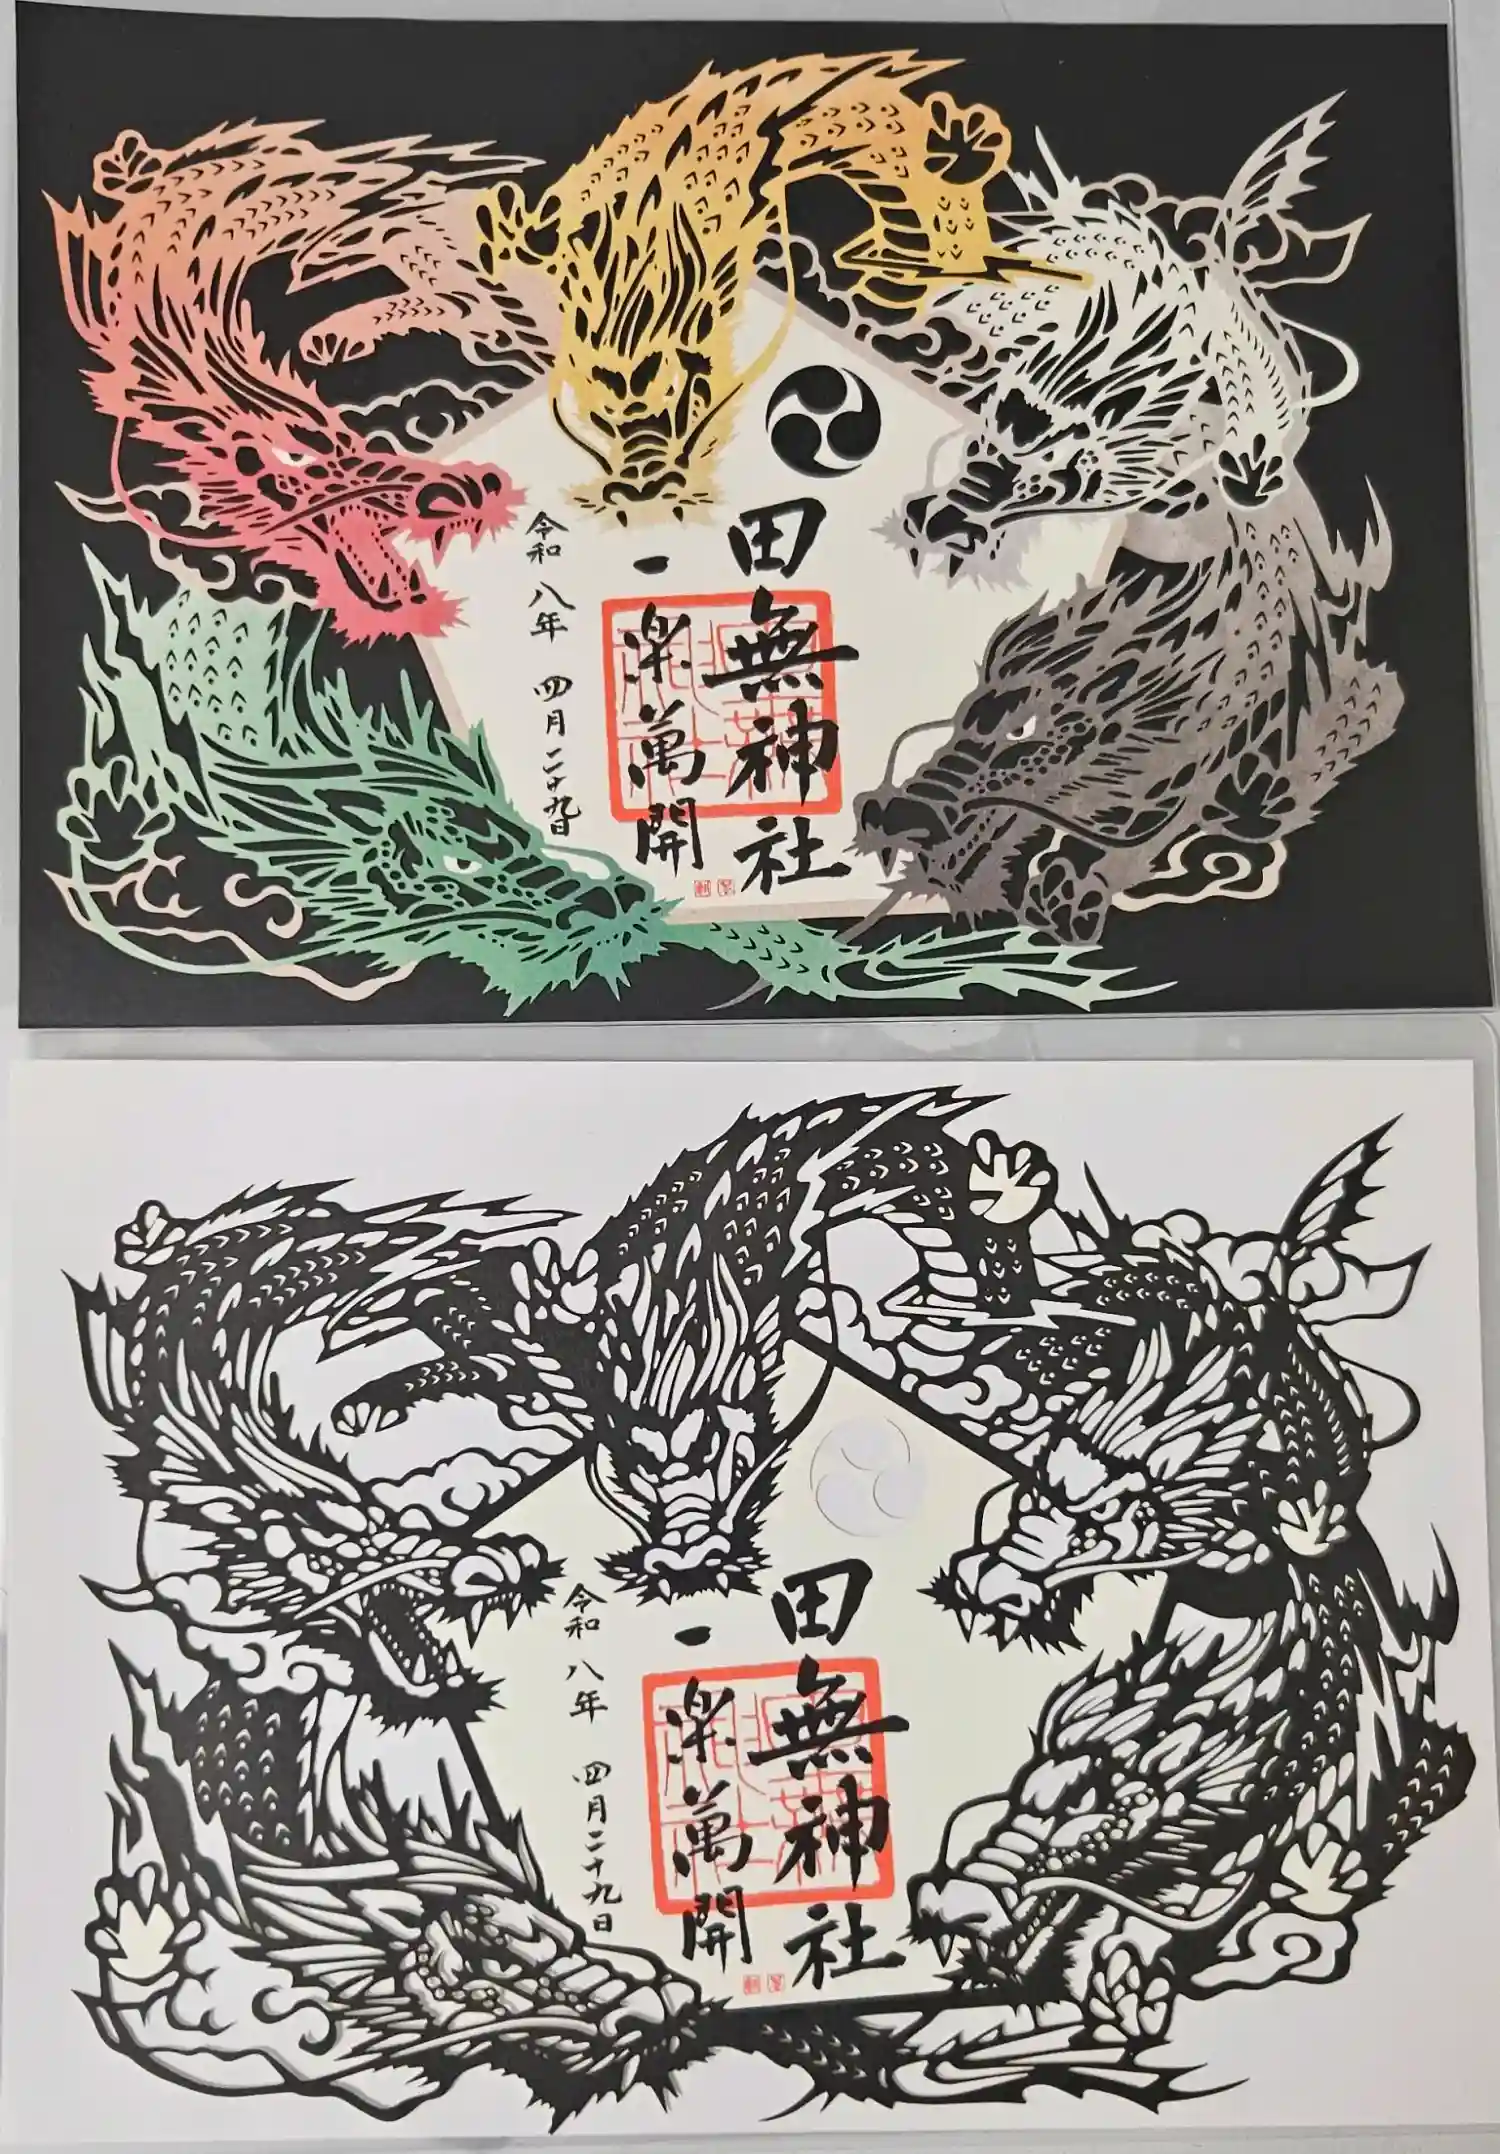 田無神社
一楽萬開
令和八年 四月二十九日
田無神社
一楽萬開
令和八年 四月二十九日